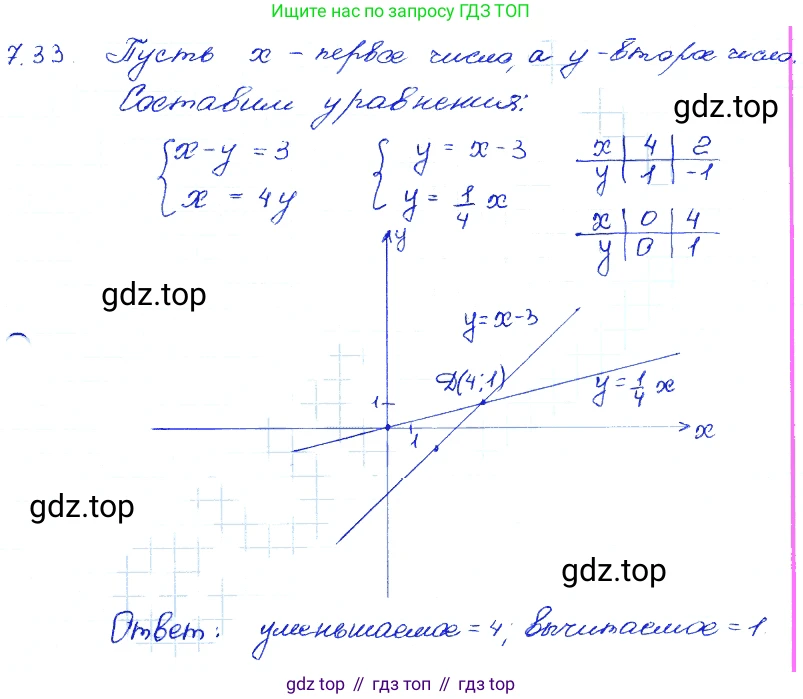 Ищите нас по запросу ГДЗ ТОП
7.33. Пусть x - первое число, а y - второе число.
Составим уравнения:
gdz.top
{ x - y = 3
x = 4y
{ y = x - 3
y = 1/4 x
x | 4 | 2
y | 1 | -1
x | 0 | 4
y | 0 | 1
y
gdz.top
y = x - 3
D(4;1)
y = 1/4 x
1
1
x
gdz.top
gdz.top
Ответ: уменьшаемое = 4; вычитаемое = 1
gdz.top // гдз топ // gdz top